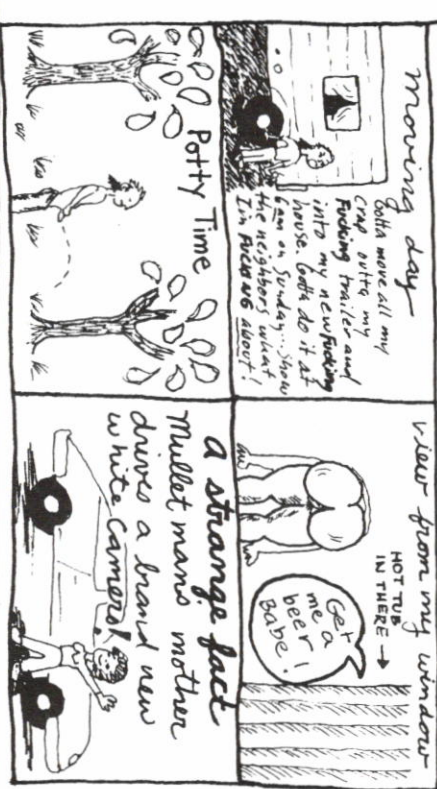 moving day
Gotta move all my
crap outta my
Fucking trailer and
into my new Fucking
house. Gotta do it at
6am on Sunday... Show
the neighbors what
I'm FUCKING about!
view from my window
HOT TUB
IN THERE →
Get
me a
beer
Babe!
Potty Time
a strange fact
Mullet mans mother
drives a brand new
white Camero!